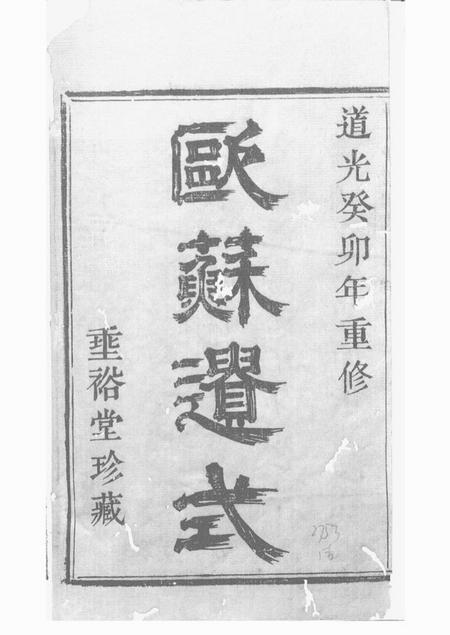 道光癸卯年重修
歐蘇遺式
垂裕堂珍藏